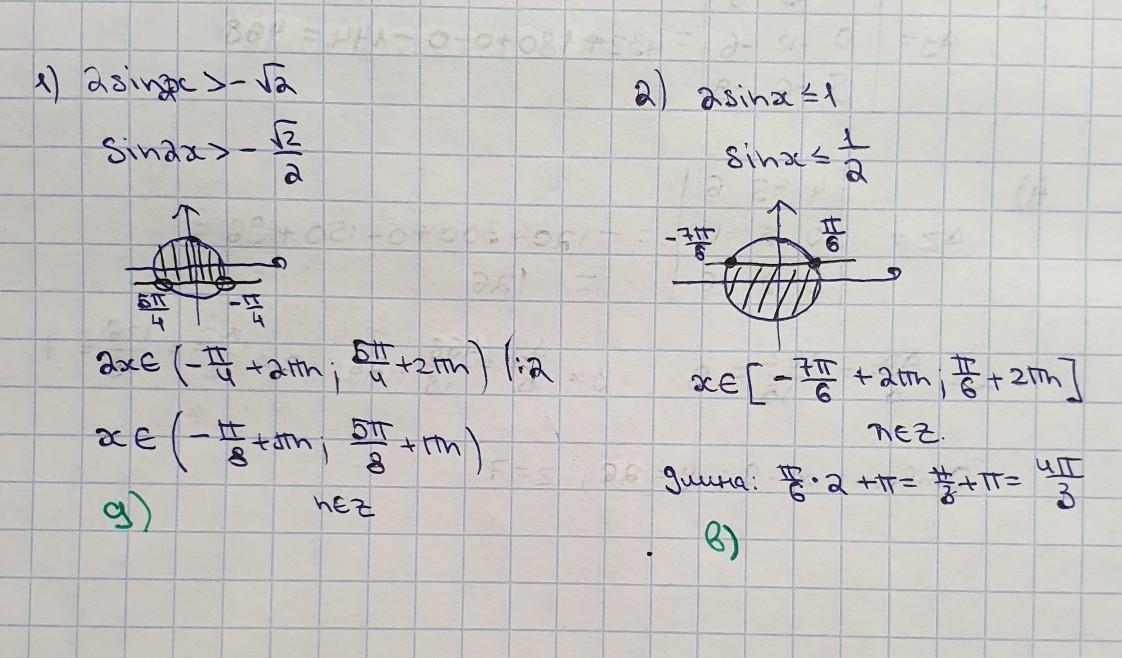 1) 2sin2x > -√2
sin2x > -√2/2
5π/4 -π/4
2x ∈ (-π/4 + 2πn; 5π/4 + 2πn) |:2
x ∈ (-π/8 + πn; 5π/8 + πn)
n∈Z
д)
2) 2sinx ≤ 1
sinx ≤ 1/2
-7π/6 π/6
x ∈ [-7π/6 + 2πn; π/6 + 2πn]
n∈Z.
длина: π/6 · 2 + π = π/3 + π = 4π/3
в)